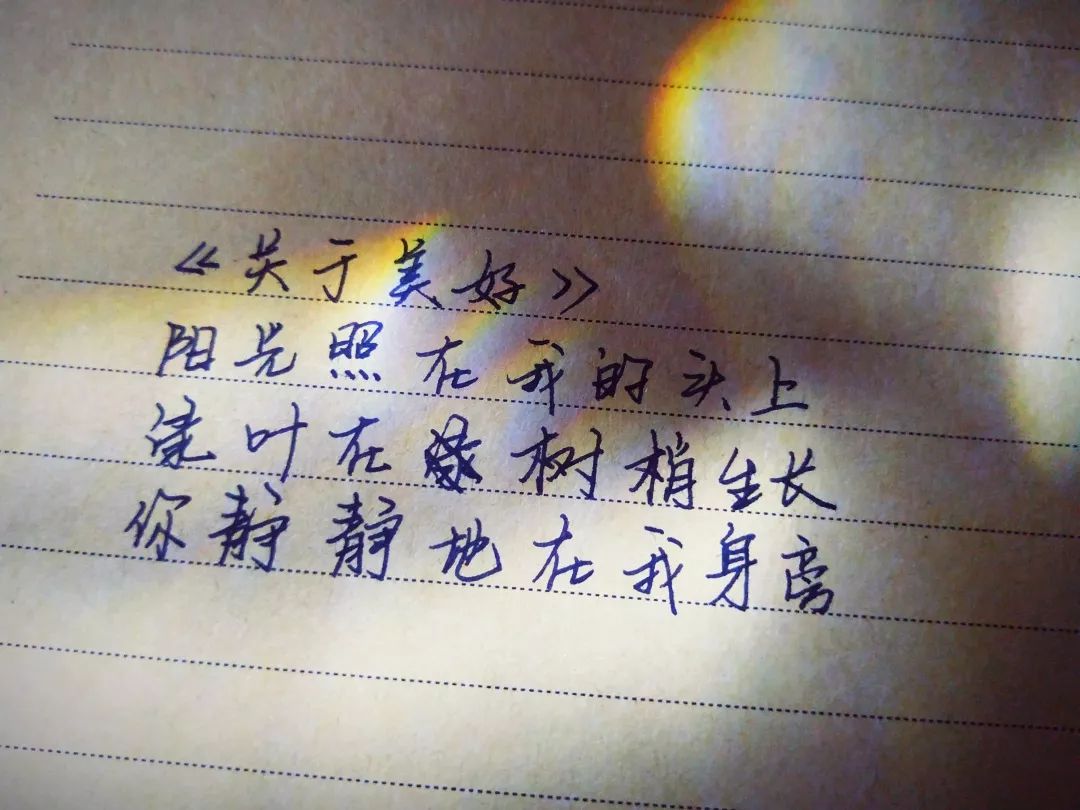 《关于美好》
阳光照在我的头上
叶在树梢生长
你静静地在我身旁